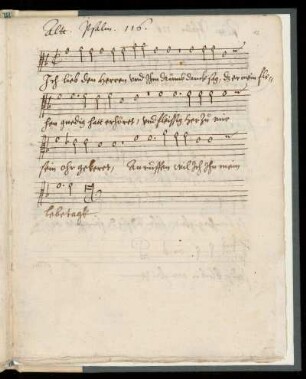 Alt. Psalm. 116.
Ich lieb den Herren und Ihm drumb danck sag, der mein fle-
hen gnedig hatt erhöret, und fleissig her zu mir
sein ohr gekeret, Anruffen wil ich ihn mein
lebetage.